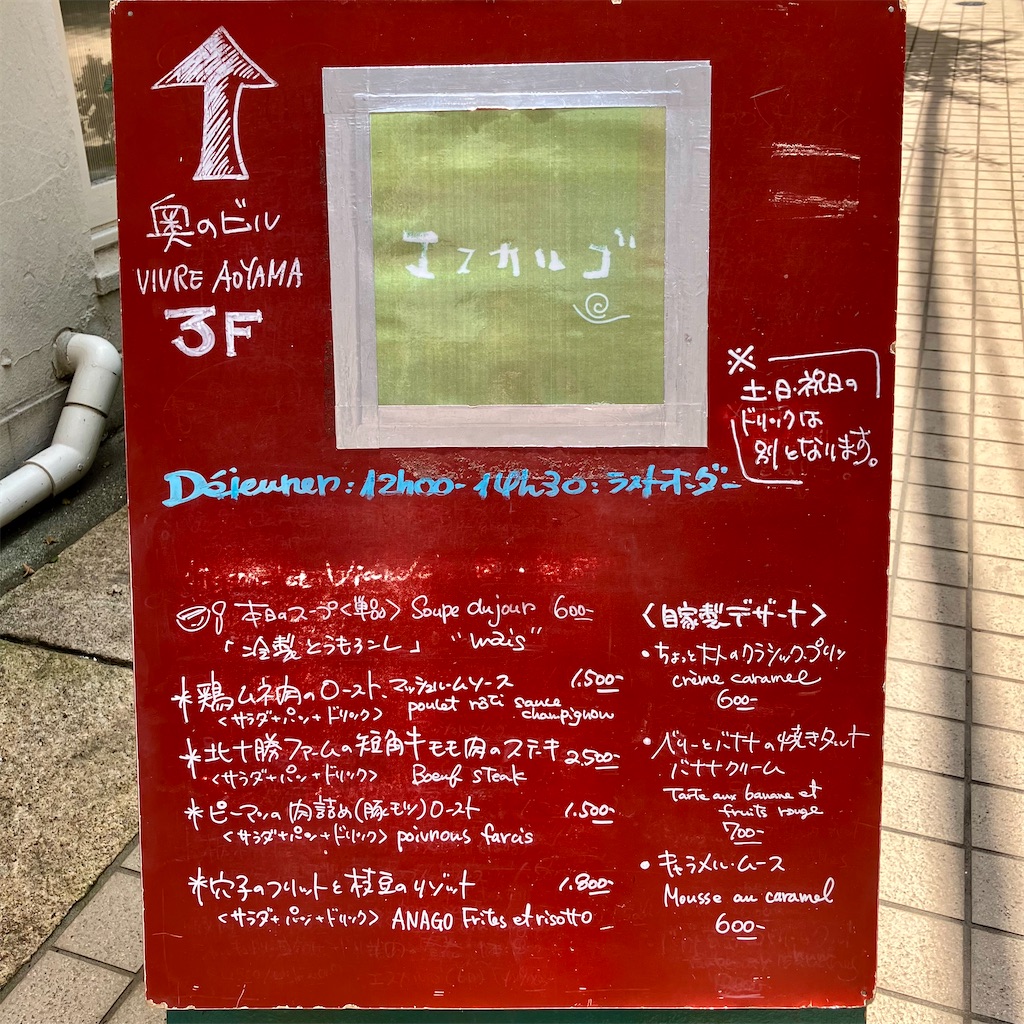 奥のビル
VIVRE AOYAMA
3F
エスカルゴ
※
土・日・祝日の
ドリンクは
別となります。
Déjeuner : 12h00- 14h30 : ラストオーダー
本日のスープ<単品> Soupe du jour 600-
「冷製とうもろこし」 "mais"
*鶏ムネ肉のロースト、マッシュルームソース 1.500-
<サラダ+パン+ドリンク> poulet rôti sauce champignon
*北十勝ファームの短角牛モモ肉のステーキ 2.500-
<サラダ+パン+ドリンク> Boeuf steak
*ピーマンの肉詰め(豚モツ)ロースト 1.500-
<サラダ+パン+ドリンク> poivrous farcis
*穴子のフリットと枝豆のリゾット 1.800-
<サラダ+パン+ドリンク> ANAGO Frites et risotto
<自家製デザート>
・ちょっと大人のクラシックプリン
crème caramel
600-
・ベリーとバナナの焼きタルト
バナナクリーム
Tarte aux banane et
fruits rouge
700-
・キャラメル・ムース
Mousse au caramel
600-